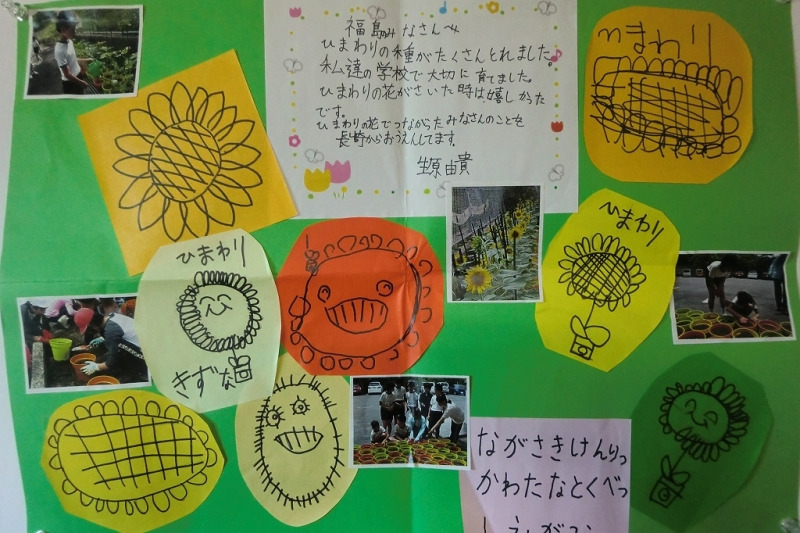 福島のみなさんへ
ひまわりの種がたくさんとれました。
私達の学校で大切に育てました。
ひまわりの花がさいた時は、嬉しかった
です。
ひまわりの花でつながったみなさんのことを
長崎からおうえんしてます。
生原由貴
ひまわり
ひまわり
きずな
ひまわり
ながさきけんりっ
かわたなとくべっ